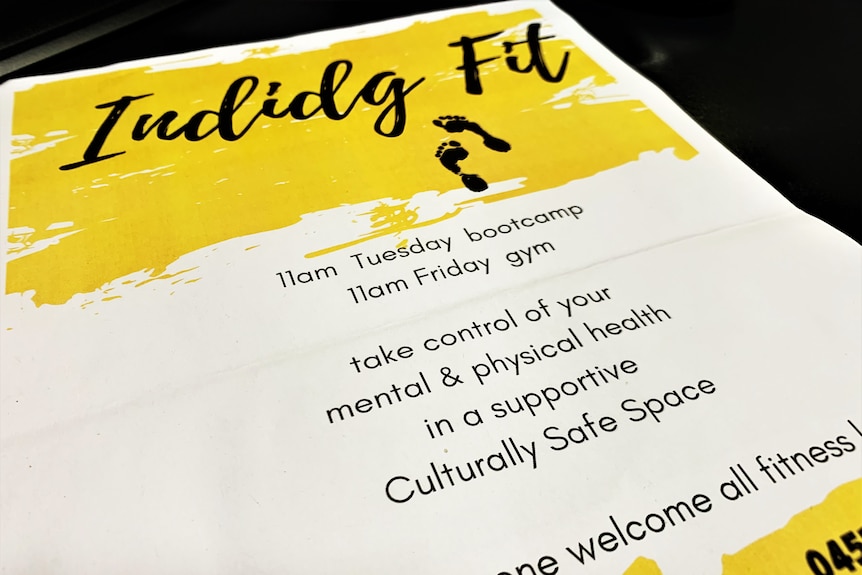 Indidg Fit
11am Tuesday bootcamp
11am Friday gym
take control of your
mental & physical health
in a supportive
Culturally Safe Space
welcome all fitness